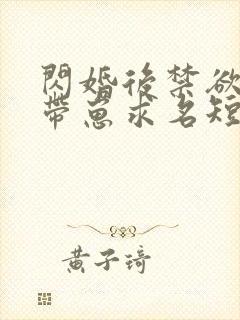 閃婚後禁欲
帶崽求名短
黃子琦